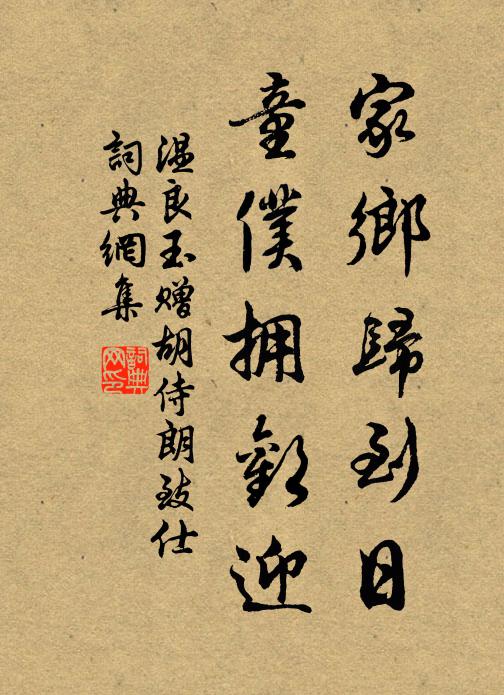 家鄉歸到日
童僕拥歡迎
溫良玉贈胡侍朗致仕
詞典網集
詞典
网印